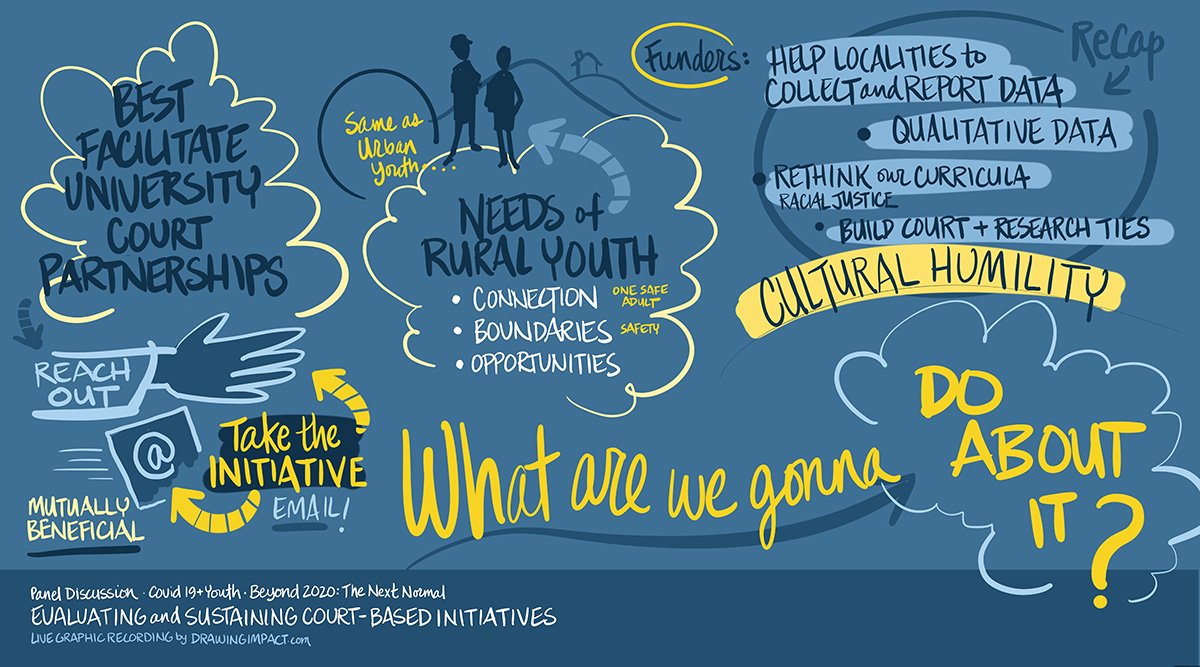 BEST
FACILITATE
UNIVERSITY
COURT
PARTNERSHIPS
REACH
OUT
@
Take the
INITIATIVE
EMAIL!
MUTUALLY
BENEFICIAL
Same as
Urban
Youth....
NEEDS of
RURAL YOUTH
• CONNECTION
ONE SAFE
ADULT
• BOUNDARIES
SAFETY
• OPPORTUNITIES
Funders:
HELP LOCALITIES to
COLLECT and REPORT DATA
• QUALITATIVE DATA
• RETHINK our CURRICULA
RACIAL JUSTICE
• BUILD COURT + RESEARCH TIES
CULTURAL HUMILITY
ReCap
What are we gonna
DO
ABOUT
IT?
Panel Discussion · Covid 19 + Youth · Beyond 2020: The Next Normal
EVALUATING and SUSTAINING COURT-BASED INITIATIVES
LIVE GRAPHIC RECORDING by DRAWINGIMPACT.com